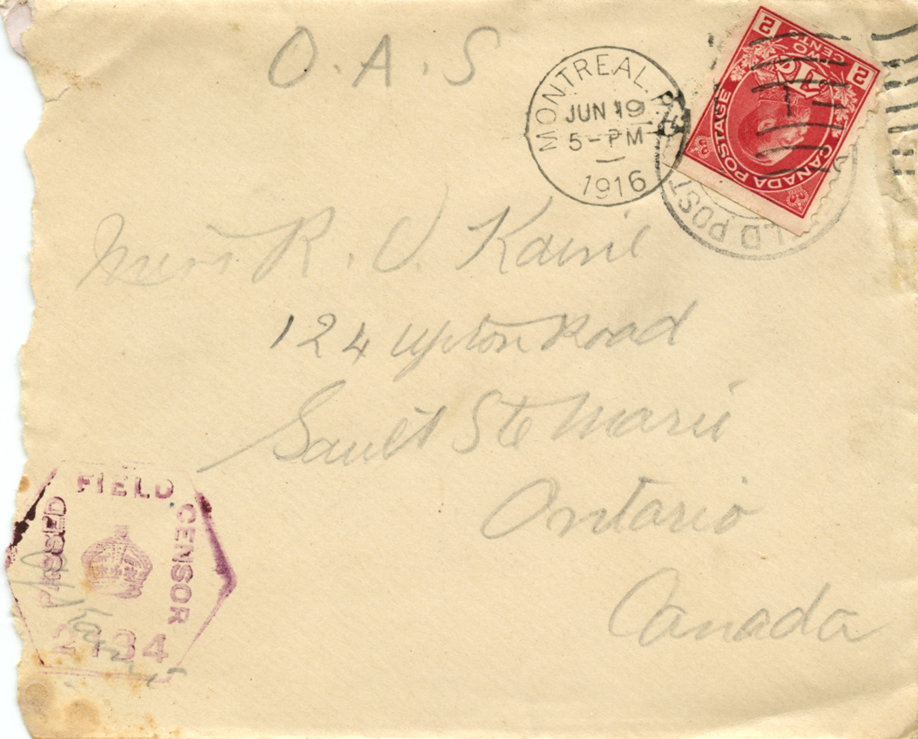 O.A.S
MONTREAL. P.Q.
JUN 19
5-PM
1916
2 TWO CENTS 2
CANADA POSTAGE
LD POST
R. V.
124 Upton Road
Sault Ste Marie
Ontario
Canada
PASSED FIELD CENSOR